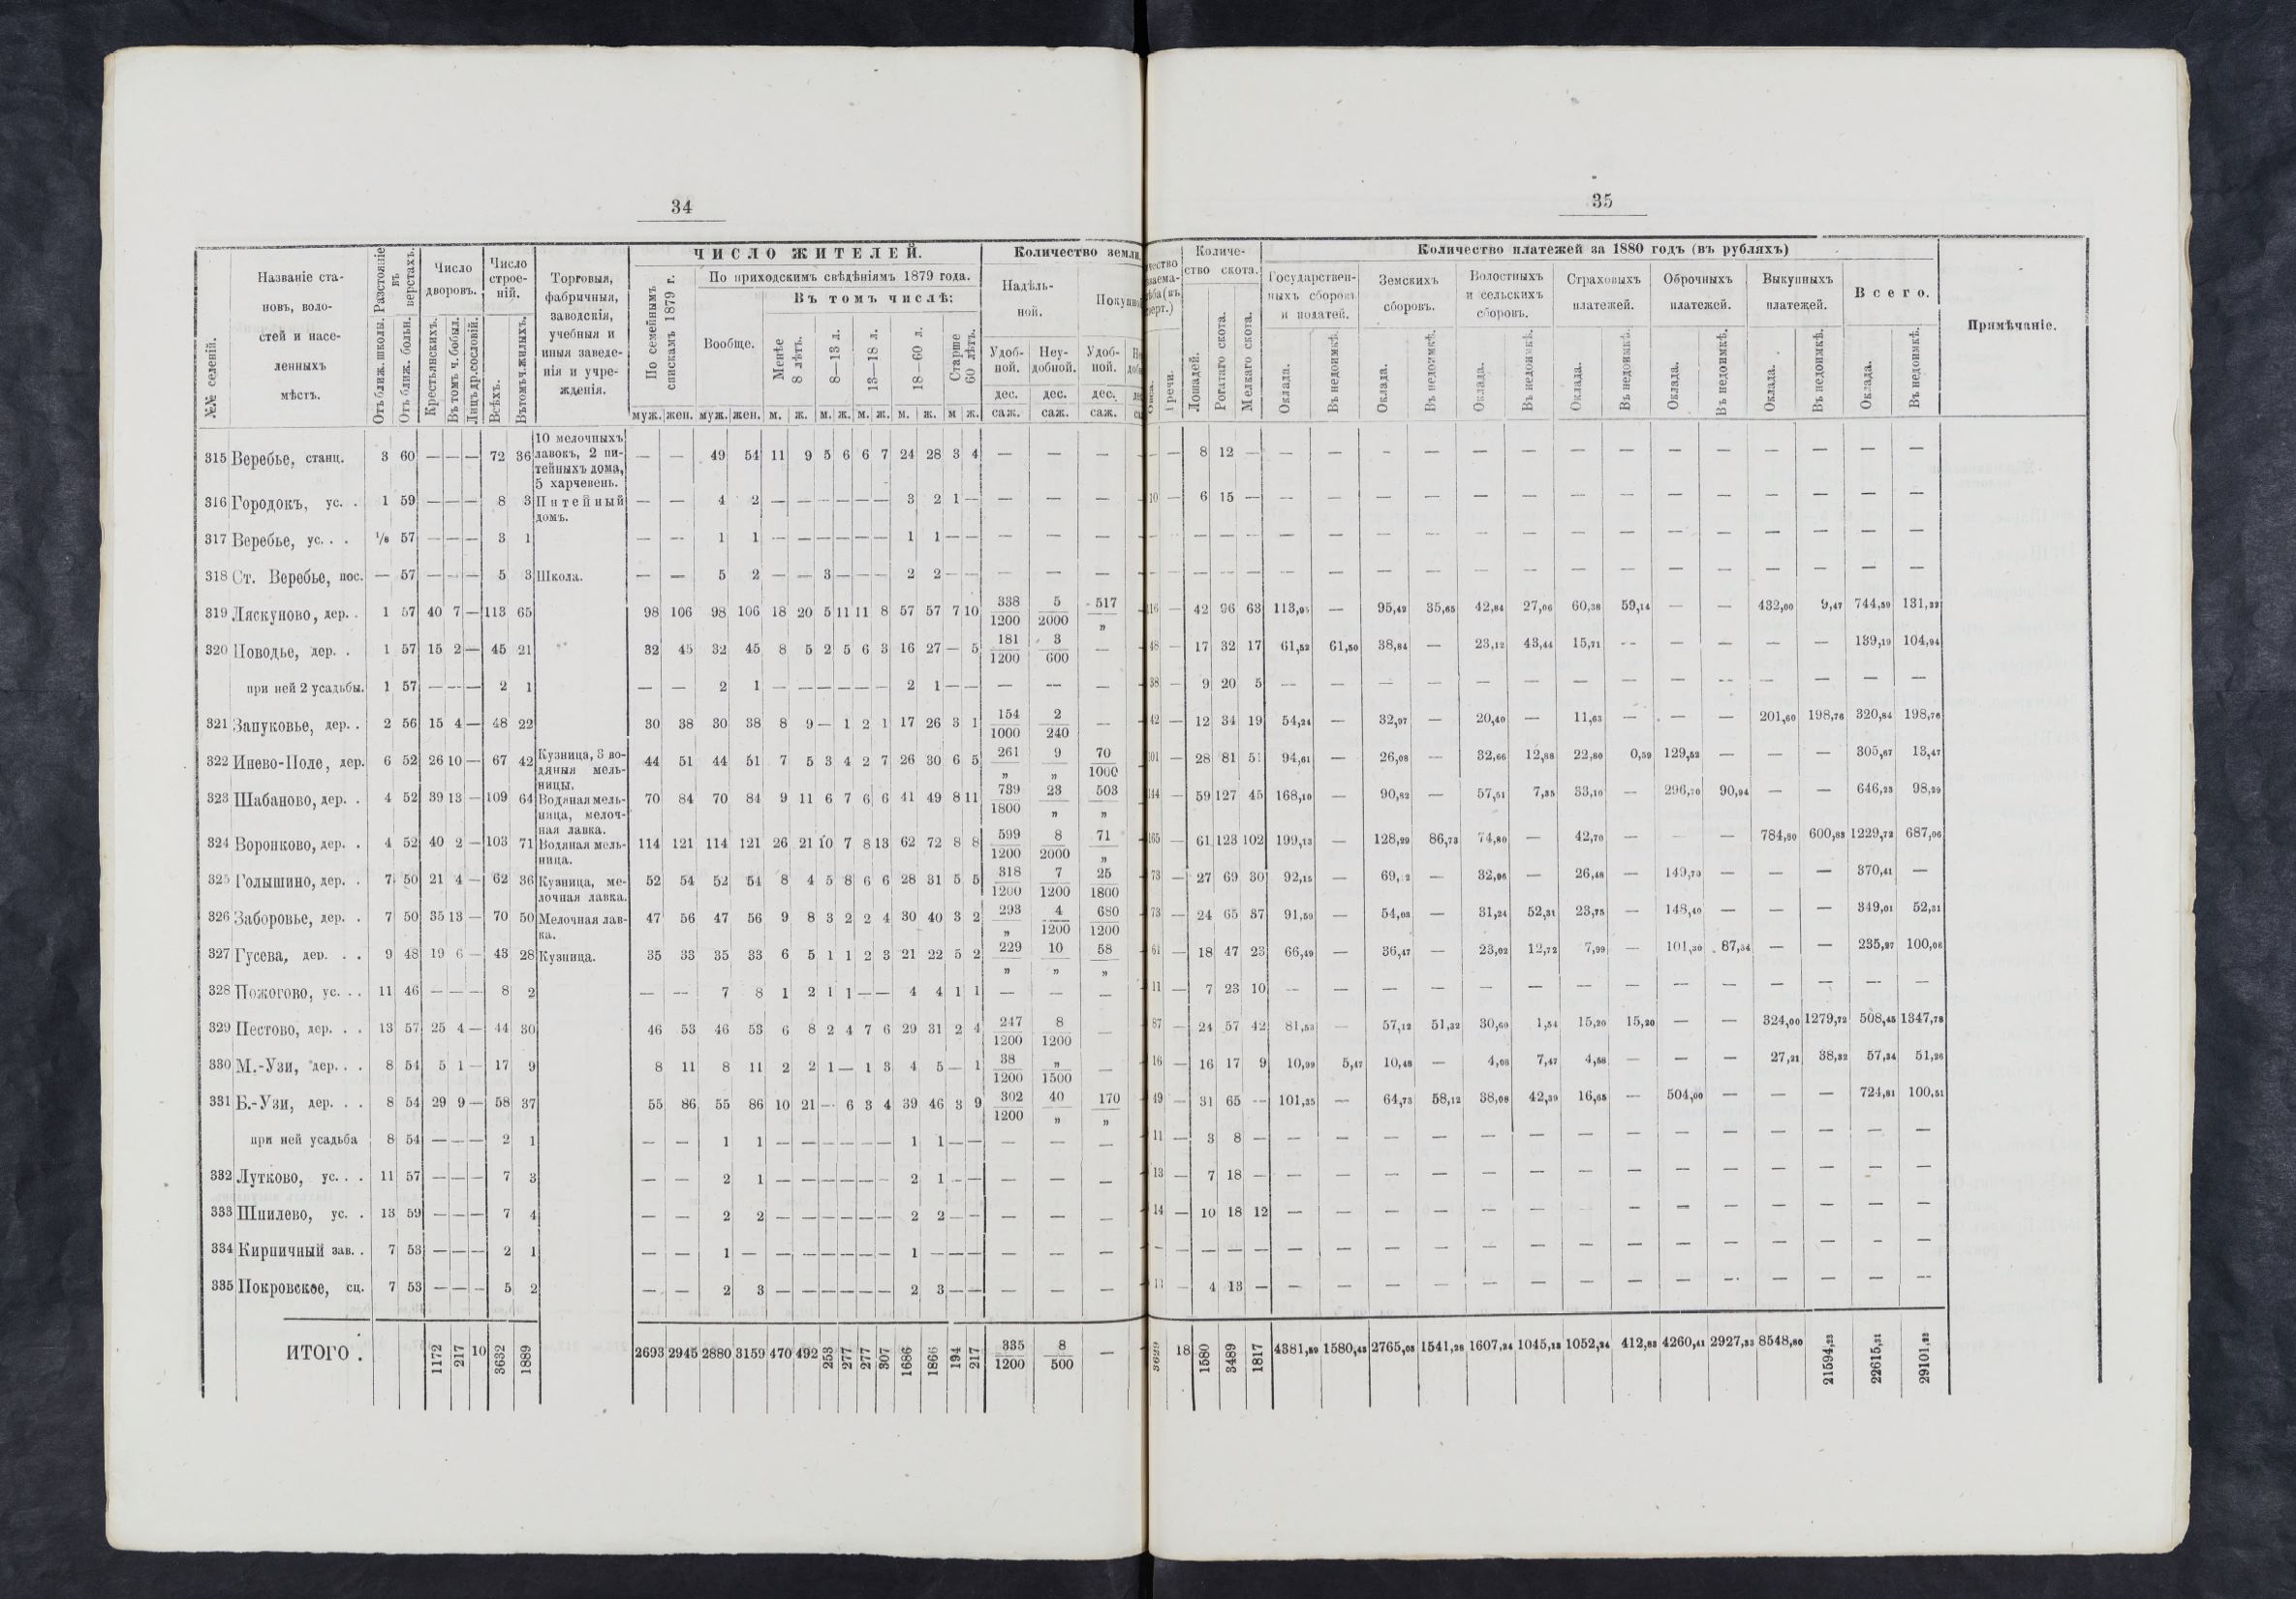 34
№№ селеній.
Названіе становъ, волостей и населенныхъ мѣстъ.
Разстояніе въ верстахъ.
Отъ ближ. школы.
Отъ ближ. больн.
Число дворовъ.
Крестьянскихъ.
Въ томъ ч. бобыл.
Лицъ др. сословій.
Число строеній.
Всѣхъ.
Въ томъ ч. жилыхъ.
Торговыя, фабричныя, заводскія, учебныя и иныя заведенія и учрежденія.
ЧИСЛО ЖИТЕЛЕЙ.
По семейнымъ спискамъ 1879 г.
По приходскимъ свѣдѣніямъ 1879 года.
Вообще.
Въ томъ числѣ:
Менѣе 8 лѣтъ.
8—13 л.
13—18 л.
18—60 л.
Старше 60 лѣтъ.
муж. жен. муж. жен. м. ж. м. ж. м. ж. м. ж. м ж.
Количество земли.
Надѣльной.
Удобной.
Неудобной.
Удобной.
дес. саж. дес. саж. дес. саж.
315 Веребье, станц. 3 60 — — — 72 36 10 мелочныхъ лавокъ, 2 питейныхъ дома, 5 харчевень. — — 49 54 11 9 5 6 6 7 24 28 3 4 — — —
316 Городокъ, ус. . 1 59 — — — 8 3 Питейный домъ. — — 4 2 — — — — — — 3 2 1 — — — —
317 Веребье, ус. . . 1/8 57 — — — 3 1 — — 1 1 — — — — — — 1 1 — — — — —
318 Ст. Веребье, пос. — 57 — — — 5 3 Школа. — — 5 2 — — 3 — — — 2 2 — — — — —
319 Ляскуново, дер. . 1 57 40 7 — 113 65 98 106 98 106 18 20 5 11 11 8 57 57 7 10 338/1200 5/2000 517/„
320 Поводье, дер. . 1 57 15 2 — 45 21 32 45 32 45 8 5 2 5 6 3 16 27 — 5 181/1200 3/600 —
при ней 2 усадьбы. 1 57 — — — 2 1 — — 2 1 — — — — — — 2 1 — — — — —
321 Запуковье, дер. . 2 56 15 4 — 48 22 30 38 30 38 8 9 — 1 2 1 17 26 3 1 154/1000 2/240 —
322 Инево-Поле, дер. 6 52 26 10 — 67 42 Кузница, 3 водяныя мельницы. 44 51 44 51 7 5 3 4 2 7 26 30 6 5 261/„ 9/„ 70/1000
323 Шабаново, дер. . 4 52 39 13 — 109 64 Водяная мельница, мелочная лавка. 70 84 70 84 9 11 6 7 6 6 41 49 8 11 739/1800 23/„ 503/„
324 Воронково, дер. . 4 52 40 2 — 103 71 Водяная мельница. 114 121 114 121 26 21 10 7 8 13 62 72 8 8 599/1200 8/2000 71/„
325 Голышино, дер. . 7 50 21 4 — 62 36 Кузница, мелочная лавка. 52 54 52 54 8 4 5 8 6 6 28 31 5 5 318/1200 7/1200 25/1800
326 Заборовье, дер. . 7 50 35 13 — 70 50 Мелочная лавка. 47 56 47 56 9 8 3 2 2 4 30 40 3 2 293/„ 4/1200 680/1200
327 Гусева, дер. . . 9 48 19 6 — 43 28 Кузница. 35 33 35 33 6 5 1 1 2 3 21 22 5 2 229/„ 10/„ 58/„
328 Пожогово, ус. . . 11 46 — — — 8 2 — — 7 8 1 2 1 1 — — 4 4 1 1 — — —
329 Пестово, дер. . . 13 57 25 4 — 44 30 46 53 46 53 6 8 2 4 7 6 29 31 2 4 247/1200 8/1200 —
330 М.-Узи, дер. . . 8 54 5 1 — 17 9 8 11 8 11 2 2 1 — 1 3 4 5 — 1 38/1200 „/1500 —
331 Б.-Узи, дер. . . 8 54 29 9 — 58 37 55 86 55 86 10 21 — 6 3 4 39 46 3 9 302/1200 40/„ 170/„
при ней усадьба 8 54 — — — 2 1 — — 1 1 — — — — — — 1 1 — — — — —
332 Лутково, ус. . . 11 57 — — — 7 3 — — 2 1 — — — — — — 2 1 — — — — —
333 Шпилево, ус. . 13 59 — — — 7 4 — — 2 2 — — — — — — 2 2 — — — — —
334 Кирпичный зав. . 7 53 — — — 2 1 — — 1 — — — — — — — 1 — — — — — —
335 Покровское, сц. 7 53 — — — 5 2 — — 2 3 — — — — — — 2 3 — — — — —
ИТОГО . 1172 217 10 3632 1889 2693 2945 2880 3159 470 492 253 277 277 307 1686 1866 194 217 335/1200 8/500 —
35
Количество скота.
Лошадей.
Рогатаго скота.
Мелкаго скота.
Количество платежей за 1880 годъ (въ рубляхъ)
Государственныхъ сборовъ и податей.
Земскихъ сборовъ.
Волостныхъ и сельскихъ сборовъ.
Страховыхъ платежей.
Оброчныхъ платежей.
Выкупныхъ платежей.
Всего.
Оклада. Въ недоимкѣ. Оклада. Въ недоимкѣ. Оклада. Въ недоимкѣ. Оклада. Въ недоимкѣ. Оклада. Въ недоимкѣ. Оклада. Въ недоимкѣ. Оклада. Въ недоимкѣ.
Примѣчаніе.
— — 8 12 — — — - — — — — — — — — — — —
10 — 6 15 — — — — — — — — — — — — — — —
— — — — — — — — — — — — — — — — — — —
— — — — — — — — — — — — — — — — — — —
116 — 42 96 63 — 95,42 35,65 42,84 27,06 60,38 59,14 — — 432,00 9,47 744,59 131,32
48 — 17 32 17 61,52 61,50 38,84 — 23,12 43,44 15,71 — — — — — 139,19 104,94
38 — 9 20 5 — — — — — — — — — — — — — —
42 — 12 34 19 54,24 — 32,97 — 20,40 — 11,63 — — — 201,60 198,76 320,84 198,76
101 — 28 81 51 94,61 — 26,08 — 32,66 12,88 22,80 0,59 129,52 — — — 305,67 13,47
144 — 59 127 45 168,10 — 90,82 — 57,51 7,35 33,10 — 296,70 90,94 — — 646,23 98,29
165 — 61 123 102 199,13 — 128,29 86,73 74,80 — 42,70 — — — 784,80 600,33 1229,72 687,06
73 — 27 69 30 92,15 — — 32,96 — 26,48 — 149,70 — — — 370,41 —
73 — 24 65 37 91,50 — 54,03 — 31,24 52,31 23,75 — 148,40 — — — 349,01 52,31
61 — 18 47 23 66,49 — 36,47 — 23,02 12,72 7,99 — 101,30 87,34 — — 235,27 100,06
11 — 7 23 10 — — — — — — — — — — — — — —
87 — 24 57 42 81,53 — 57,12 51,32 30,60 1,54 15,20 15,20 — — 324,00 1279,72 508,45 1347,78
16 — 16 17 9 10,99 5,47 10,48 — 4,08 7,47 4,58 — — — 27,21 38,32 57,34 51,26
49 — 31 65 — 101,35 — 64,73 58,12 38,08 42,39 16,65 — 504,00 — — — 724,81 100,51
11 — 3 8 — — — — — — — — — — — — — — —
13 — 7 18 — — — — — — — — — — — — — — —
14 — 10 18 12 — — — — — — — — — — — — — —
— — — — — — — — — — — — — — — — — — —
13 — 4 13 — — — — — — — — — — — — — — —
3629 18 1580 3489 1817 4381,59 1580,43 2765,08 1541,28 1607,24 1045,18 1052,34 412,83 4260,41 2927,33 8548,60 21594,23 22615,31 29101,22